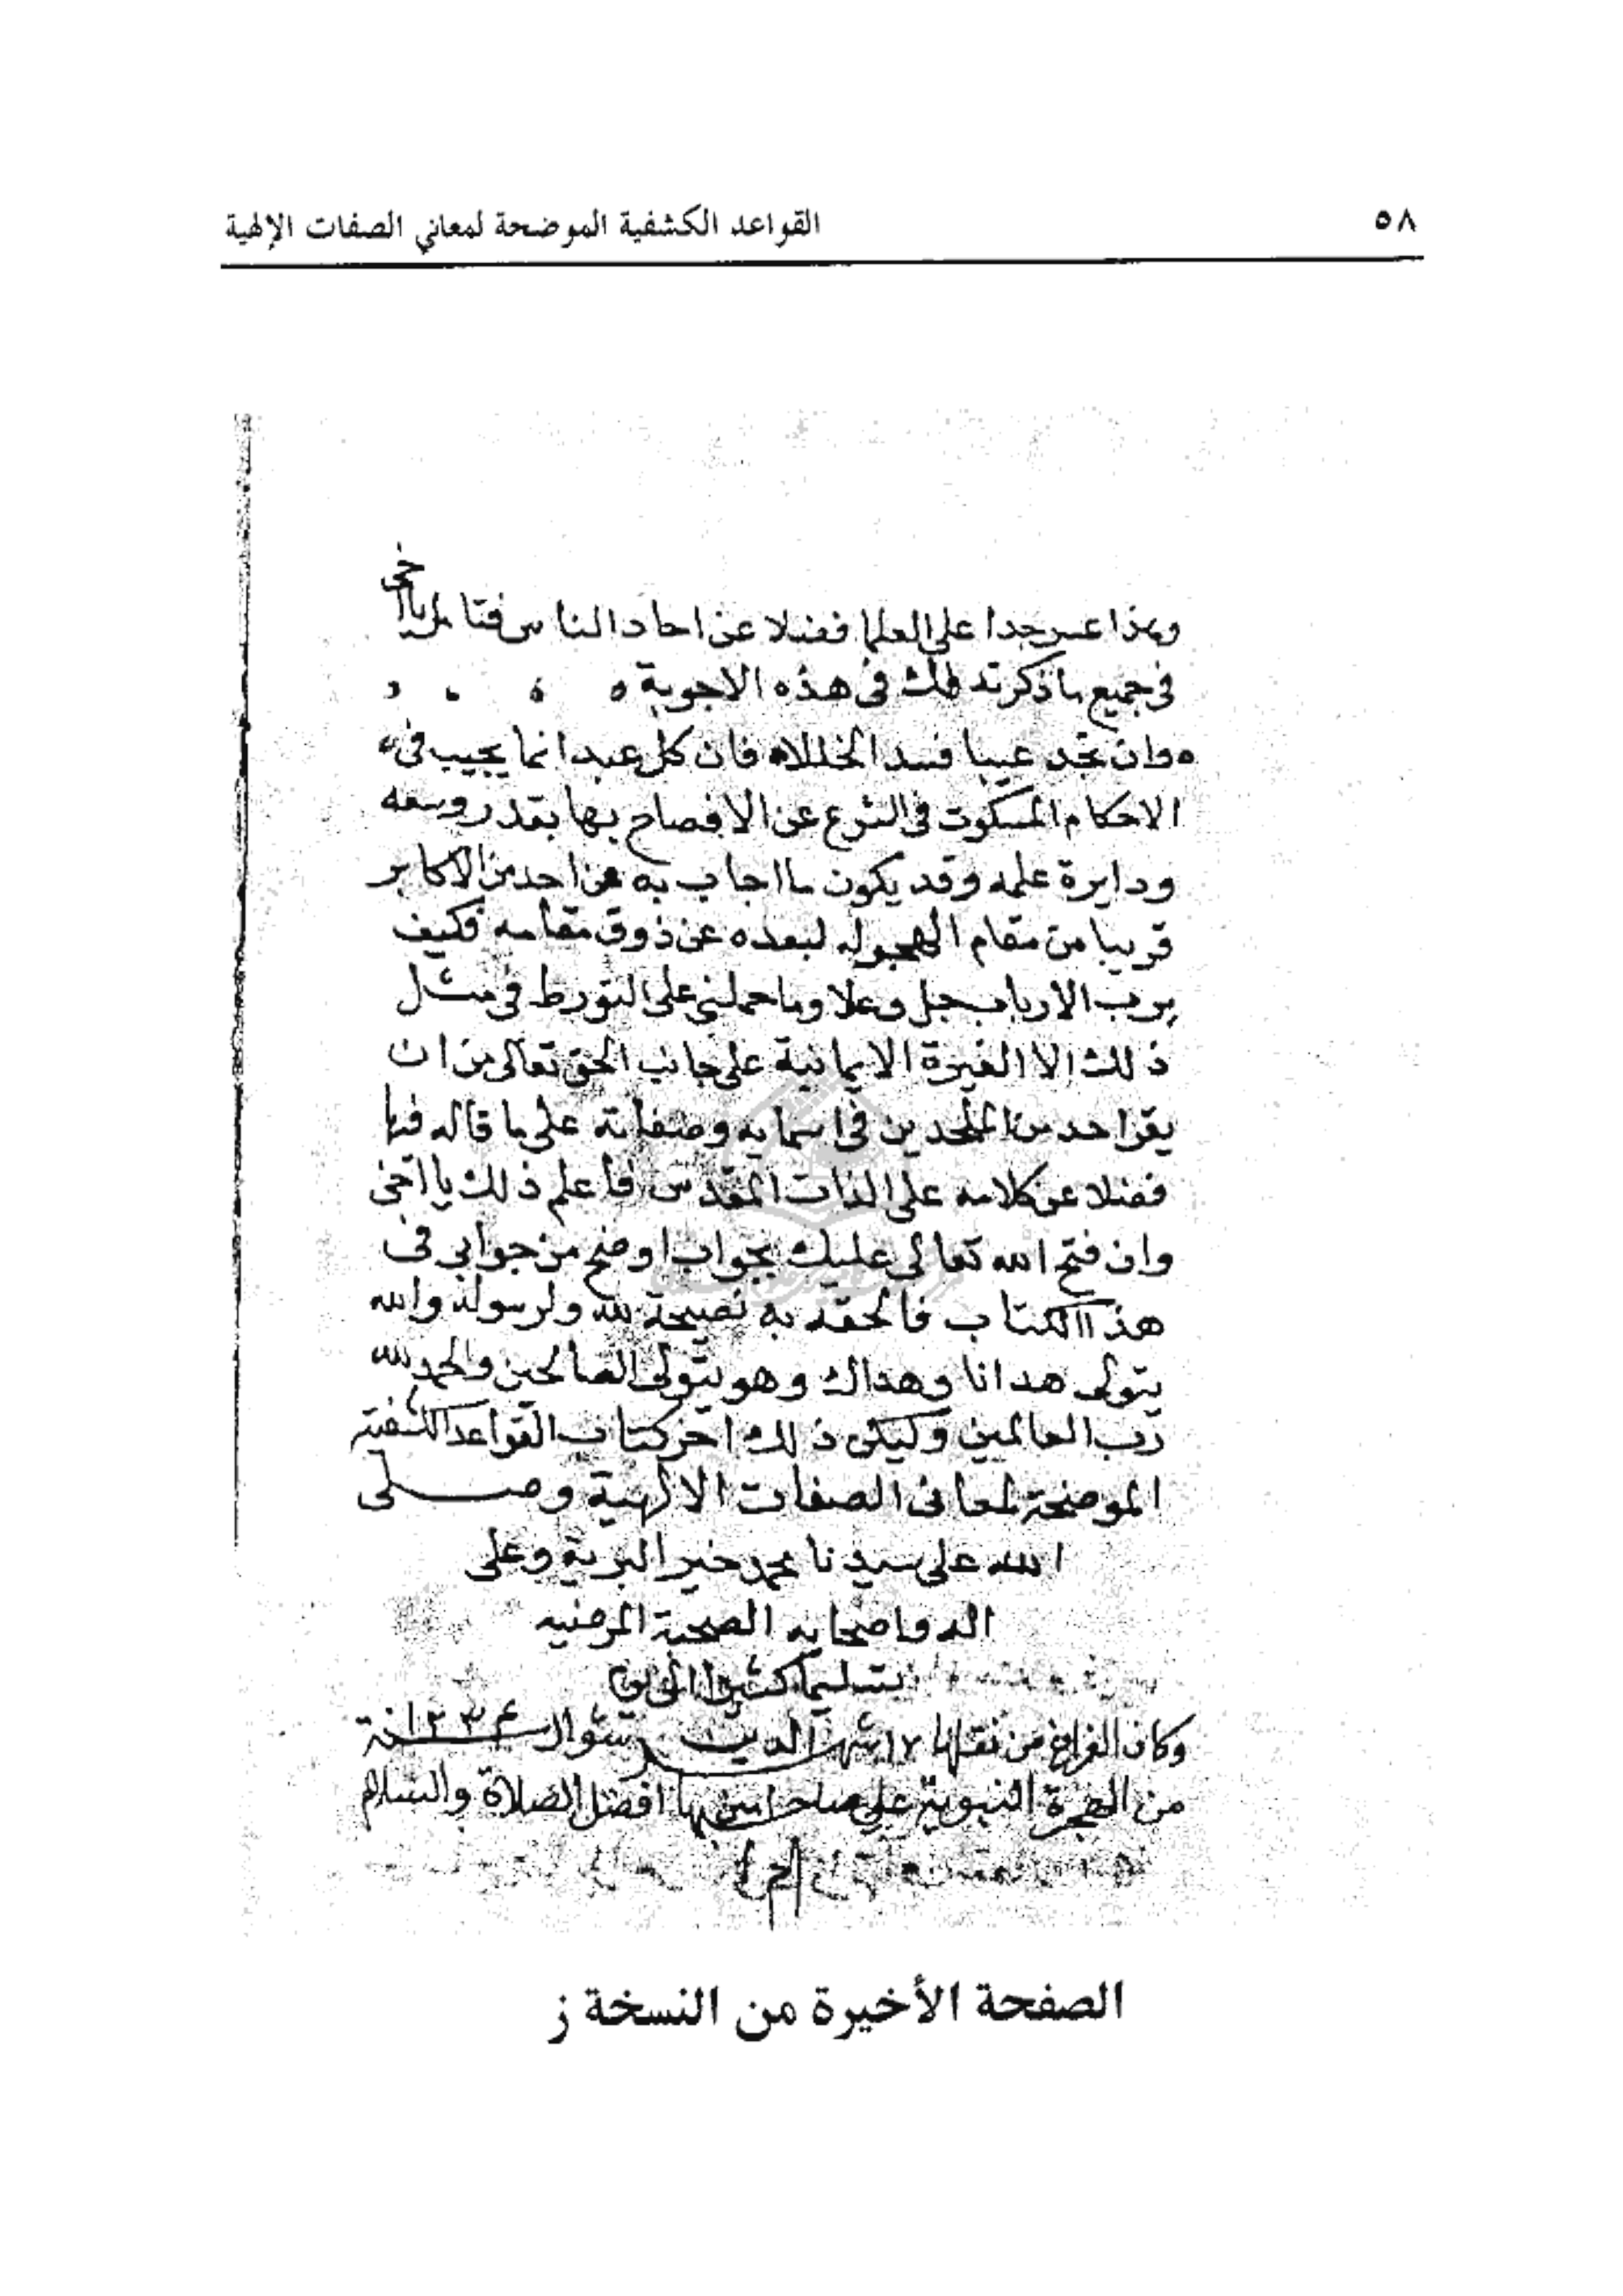 ٥٨
القواعد الكشفية الموضحة لمعاني الصفات الإلهية
وهذا عسر جدا على العلما فضلا عن احاد الناس فتامل يا اخى
فى جميع ما ذكرته لك فى هذه الاجوبة
وان تجد عيبا فسد الخللا فان كل عبد انما يجيب فى
الاحكام المسكوت فى الشرع عن الافصاح بها بقدر وسعه
ودايرة علمه وقد يكون ما اجاب به عن احد من الاكابر
قريبا من مقام الهجو له لبعده عن ذوق مقامه فكيف
برب الارباب جل وعلا وما حملنى على التورط فى مثل
ذلك الا الغيرة الايمانية على جانب الحق تعالى من ان
يقر احد من الملحدين فى اسمايه وصفاته على ما قاله فيها
فضلا عن كلامه على الذات المقدس فاعلم ذلك يا اخى
وان فتح الله تعالى عليك بجواب اوضح من جوابى فى
هذا الكتاب فالحقه به نصيحة لله ولرسوله والله
يتولى هدانا وهداك وهو يتولى الصالحين والحمد لله
رب العالمين وليكن ذلك اخر كتاب القواعد الكشفية
الموضحة لمعانى الصفات الالهية وصلى
الله على سيدنا محمد خير البرية وعلى
اله واصحابه الصحبة المرضيه
تسليما كثيرا
وكان الفراغ من نقلها ١٧ شهر شوال سنة
من الهجرة النبوية على صاحبها افضل الصلاة والسلام
الصفحة الأخيرة من النسخة ز